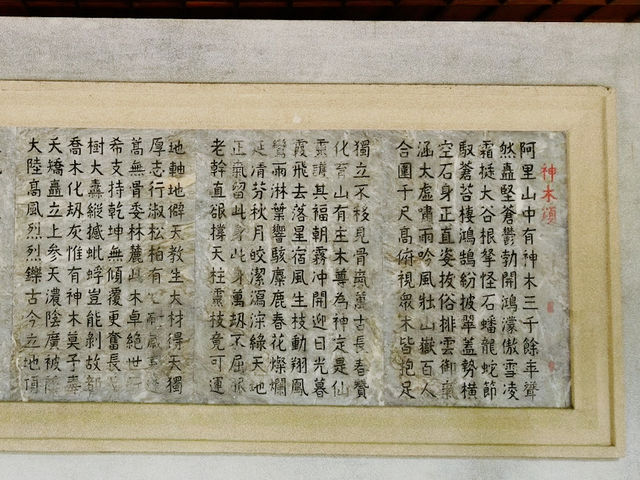 神木頌
阿里山中有神木三千餘年聳
然矗堅蒼鬱勃開鴻濛傲雪凌
霜挺大谷根拏怪石蟠龍蛇節
馭蒼苔棲鴻鵠紛披翠蓋勢橫
空石身正直姿拔俗排雲御氣
涵太虛嘯雨吟風壯山嶽百人
合圍千尺高俯視眾木皆抱足
獨立不移見骨氣萬古長春贊
化營山有主木尊為神是仙
靈護其福朝霧沖開迎日光暮
霞飛去落星宿風生枝動翔鳳
鸞雨淋葉響駭麋鹿春花燦爛
延清芬秋月皎潔瀉淙綠天地
正氣留此身此身萬劫不屈服
老幹直欲撐天柱靈枝竟可運
地軸地僻天教生大材得天獨
厚志行淑松柏有耐
蒿無骨委林麓此木卓絕世
希支持乾坤無傾覆更奮長
樹大纛縱撼蚍蜉豈能剝故
喬木化劫灰惟有神木莫予毒
夭矯矗立上參天濃陰廣被
大陸高風烈烈鑠古今立地頂